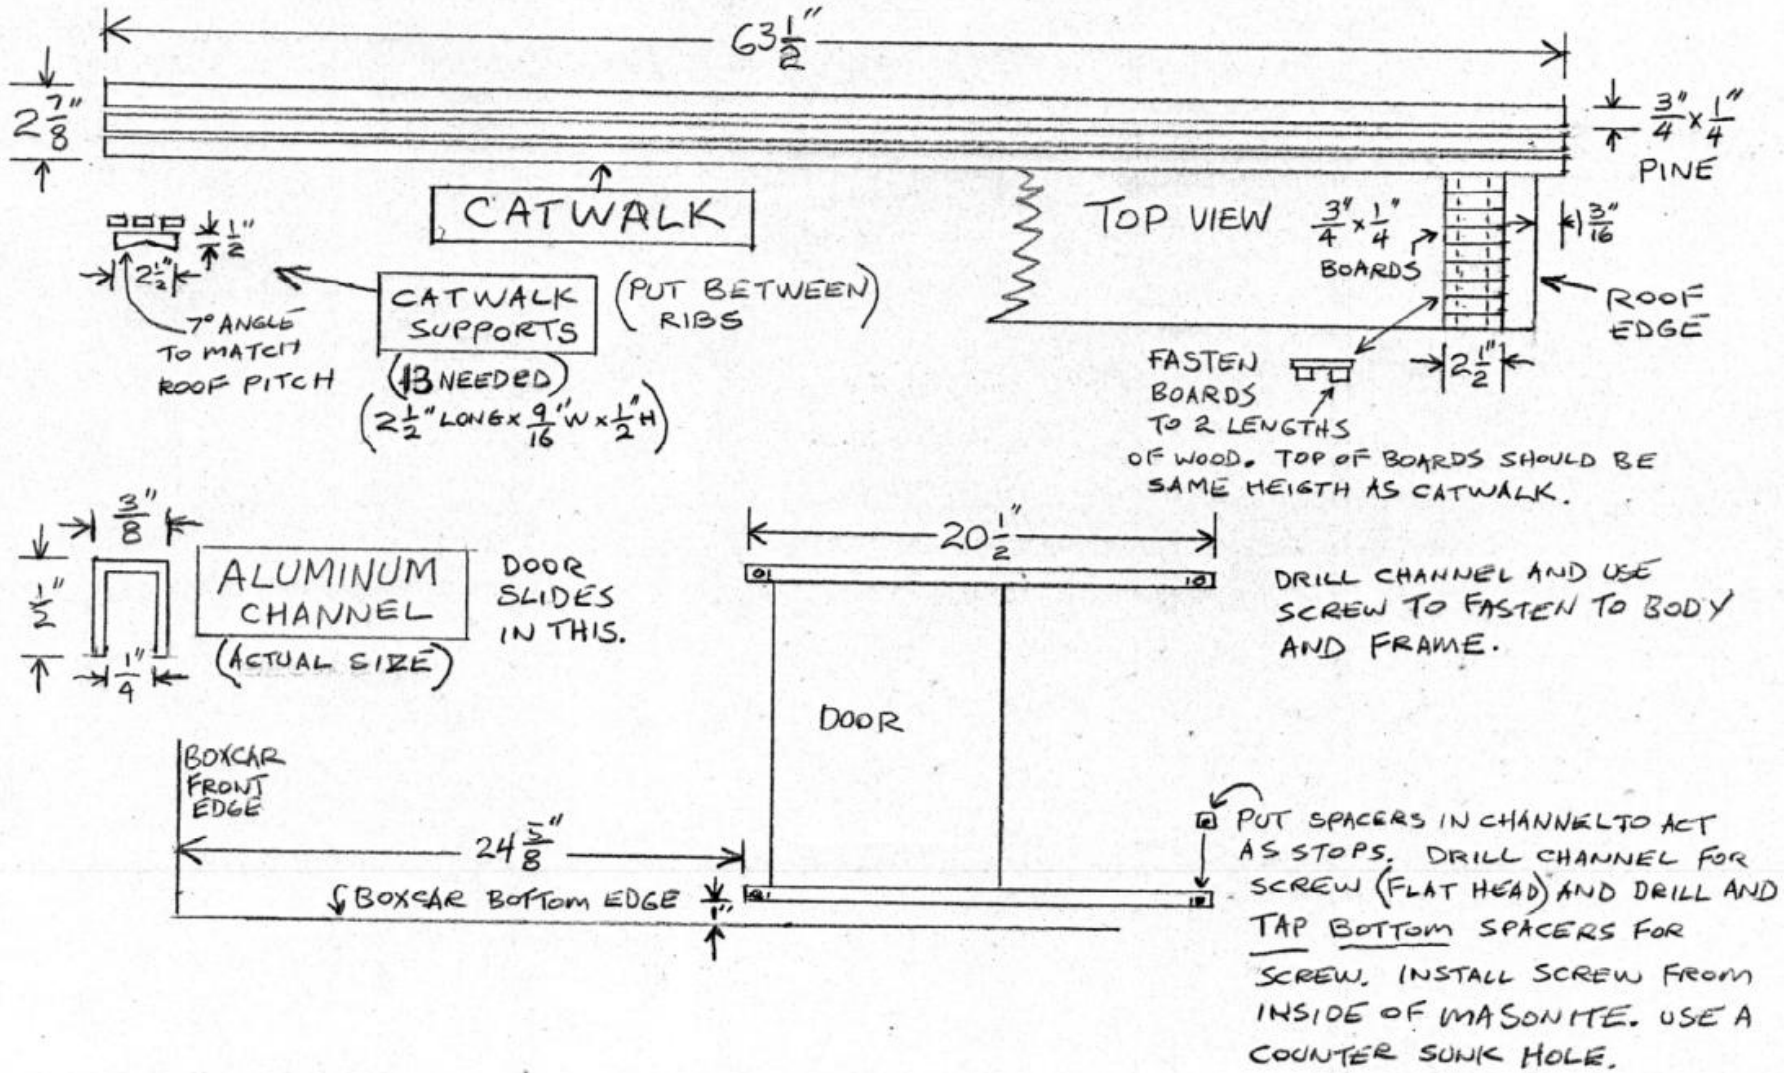 63 1/2"
2 7/8"
3/4" x 1/4"
PINE
CATWALK
TOP VIEW
3/4" x 1/4"
BOARDS
1 3/16"
ROOF
EDGE
1/2"
2 1/2"
7° ANGLE
TO MATCH
ROOF PITCH
CATWALK
SUPPORTS
(PUT BETWEEN)
RIBS
(13 NEEDED)
(2 1/2" LONG x 9/16" W x 1/2" H)
2 1/2"
FASTEN
BOARDS
TO 2 LENGTHS
OF WOOD. TOP OF BOARDS SHOULD BE
SAME HEIGTH AS CATWALK.
3/8"
1/2"
1/4"
ALUMINUM
CHANNEL
(ACTUAL SIZE)
DOOR
SLIDES
IN THIS.
20 1/2"
DRILL CHANNEL AND USE
SCREW TO FASTEN TO BODY
AND FRAME.
DOOR
BOXCAR
FRONT
EDGE
24 5/8"
BOXCAR BOTTOM EDGE
1"
PUT SPACERS IN CHANNEL TO ACT
AS STOPS. DRILL CHANNEL FOR
SCREW (FLAT HEAD) AND DRILL AND
TAP BOTTOM SPACERS FOR
SCREW. INSTALL SCREW FROM
INSIDE OF MASONITE. USE A
COUNTER SUNK HOLE.